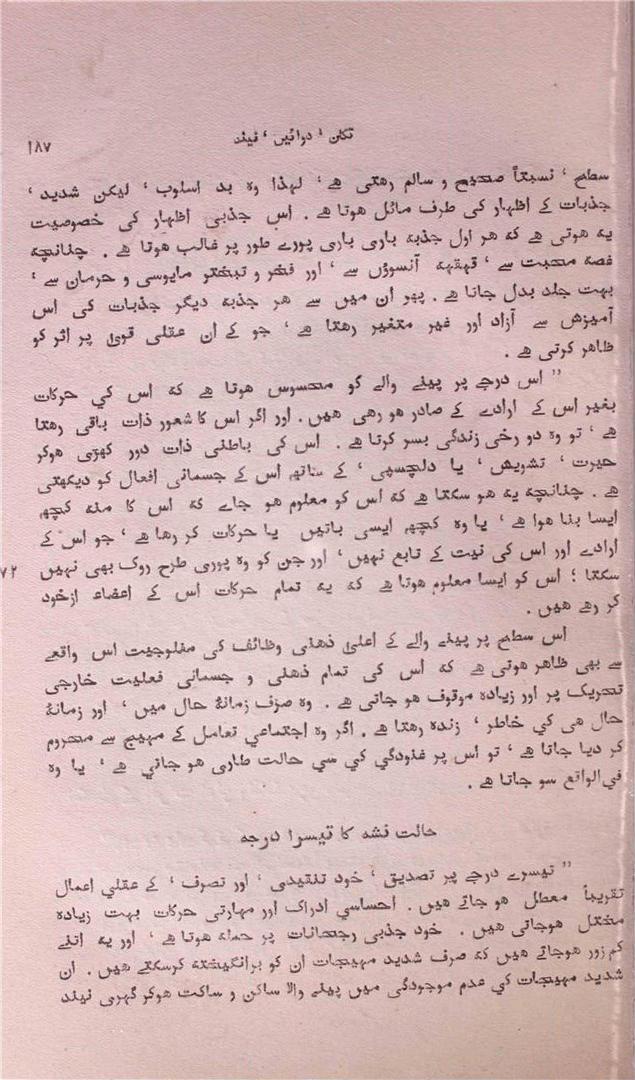 تکان ' دوائیں ' نیند
۱۸۷
سطح ' نسبتاً صحیح و سالم رہتی ہے ' لہذا وہ بد اسلوب ' لیکن شدید '
جذبات کے اظہار کی طرف مائل ہوتا ہے . اس جذبی اظہار کی خصوصیت
یہ ہوتی ہے کہ ہر اول جذبہ باری باری پورے طور پر غالب ہوتا ہے . چنانچہ
غصہ محبت سے ' قہقہہ آنسوؤں سے ' اور فخر و تبختر مایوسی و حرمان سے '
بہت جلد بدل جاتا ہے . پھر ان میں سے ہر جذبہ دیگر جذبات کی اس
آمیزش سے آزاد اور غیر متغیر رہتا ہے ' جو کے ان عقلی قویٰ پر اثر کو
ظاہر کرتی ہے .
" اس درجے پر پینے والے کو محسوس ہوتا ہے کہ اس کی حرکات
بغیر اس کے ارادے کے صادر ہو رہی ہیں . اور اگر اس کا شعور ذات باقی رہتا
ہے ' تو وہ دو رخی زندگی بسر کرتا ہے . اس کی باطنی ذات دور کھڑی ہوکر
حیرت ' تشویش ' یا دلچسپی ' کے ساتھ اس کے جسمانی افعال کو دیکھتی
ہے . چنانچہ یہ ہو سکتا ہے کہ اس کو معلوم ہو جاے کہ اس کا منہ کچھ
ایسا بنا ہوا ہے ' یا وہ کچھ ایسی باتیں یا حرکات کر رہا ہے ' جو اس کے
ارادے اور اس کی نیت کے تابع نہیں ' اور جن کو وہ پوری طرح روک بھی نہیں
۷۲
سکتا ؛ اس کو ایسا معلوم ہوتا ہے کہ یہ تمام حرکات اس کے اعضاء ازخود
کر رہے ہیں .
اس سطح پر پینے والے کے اعلیٰ ذہنی وظائف کی مفلوجیت اس واقعے
سے بھی ظاہر ہوتی ہے کہ اس کی تمام ذہنی و جسمانی فعلیت خارجی
تحریک پر اور زیادہ موقوف ہو جاتی ہے . وہ صرف زمانۂ حال میں ' اور زمانۂ
حال ہی کی خاطر ' زندہ رہتا ہے . اگر وہ اجتماعی تعامل کے مہیج سے محروم
کر دیا جاتا ہے ' تو اس پر غنودگی کی سی حالت طاری ہو جاتی ہے ' یا وہ
فی الواقع سو جاتا ہے .
حالت نشہ کا تیسرا درجہ
" تیسرے درجے پر تصدیق ' خود تنقیدی ' اور تصرف ' کے عقلی اعمال
تقریباً معطل ہو جاتے ہیں . احساسی ادراک اور مہارتی حرکات بہت زیادہ
مختل ہوجاتی ہیں . خود جذبی رجحانات پر حملہ ہوتا ہے ' اور یہ اتنے
کم زور ہوجاتے ہیں کہ صرف شدید مہیجات ان کو برانگیختہ کرسکتے ہیں . ان
شدید مہیجات کی عدم موجودگی میں پینے والا ساکن و ساکت ہوکر گہری نیند